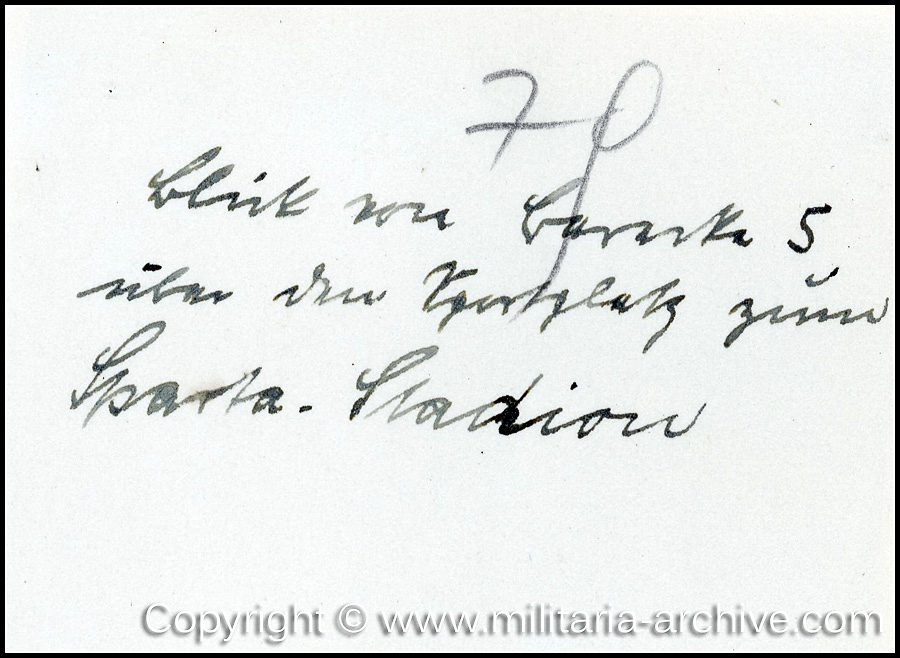 70
Blick von Baracke 5
über den Sportplatz zum
Sparta-Stadion
Copyright © www.militaria-archive.com